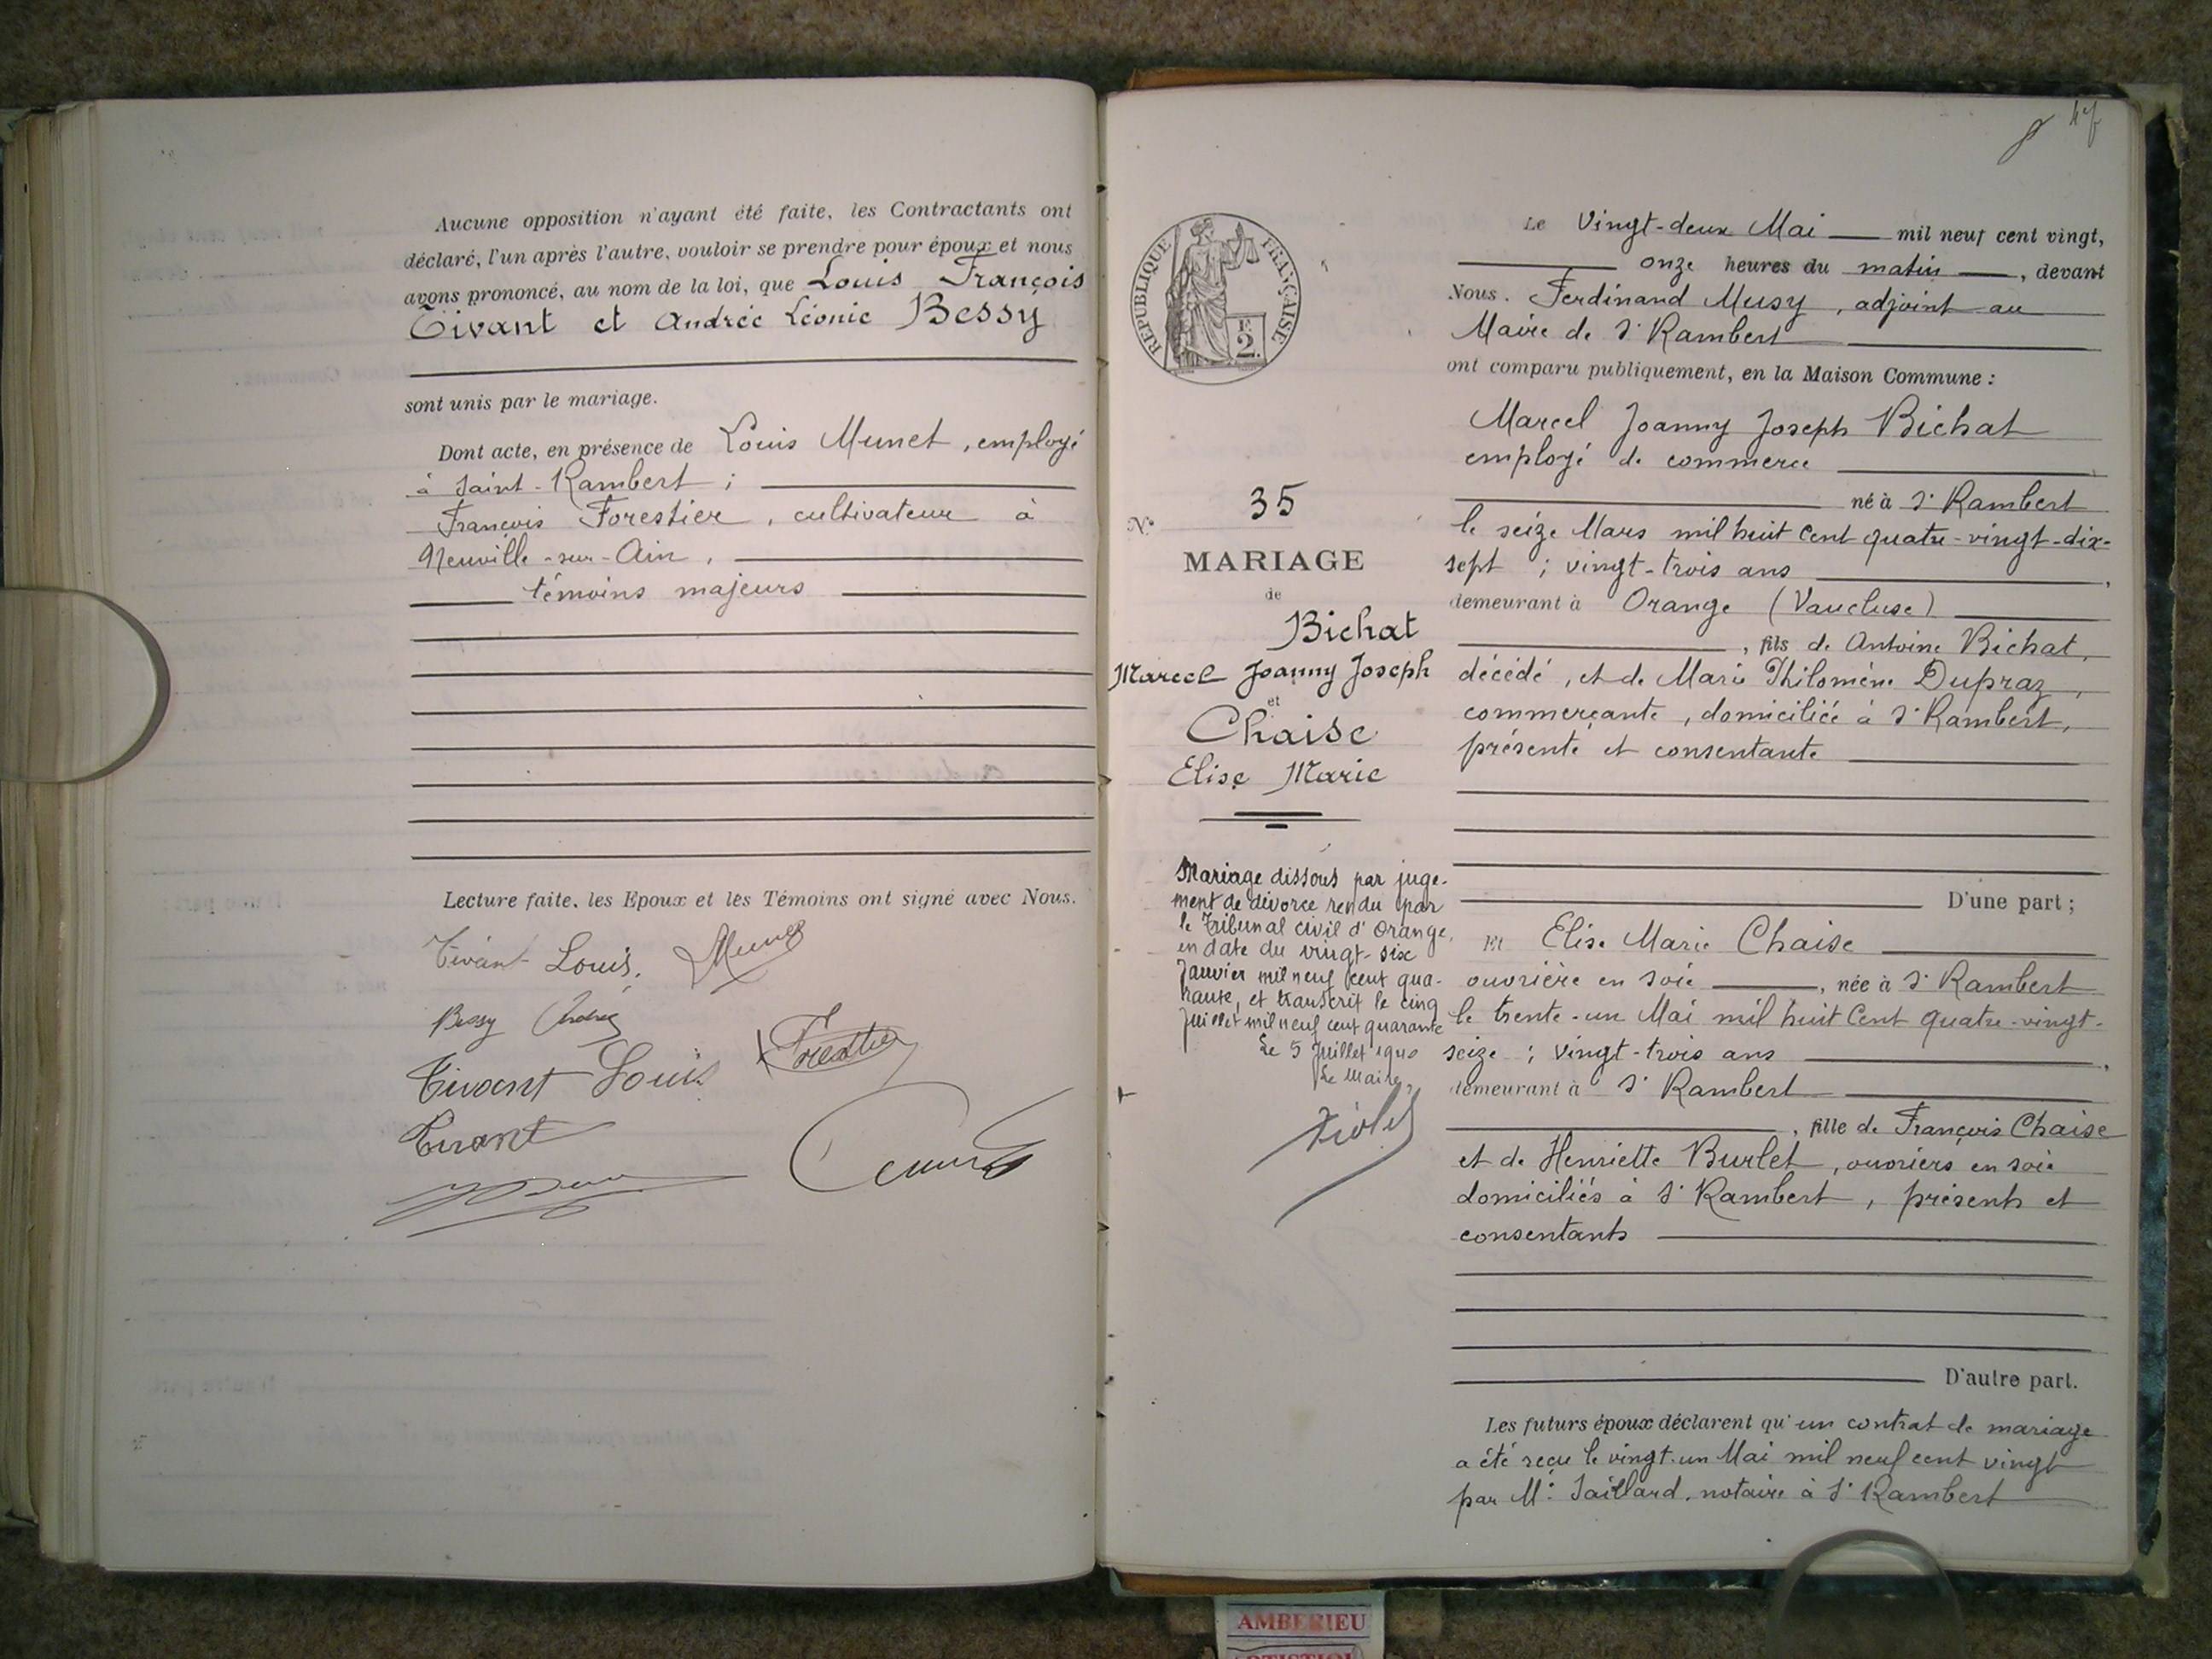 Aucune opposition n'ayant été faite, les Contractants ont
déclaré, l'un après l'autre, vouloir se prendre pour époux et nous
avons prononcé, au nom de la loi, que Louis François
Tivant et Andrée Léonie Bessy
sont unis par le mariage.
Dont acte, en présence de Louis Munet, employé
à Saint-Rambert ;
François Forestier, cultivateur à
Neuville-sur-Ain,
témoins majeurs
Lecture faite, les Epoux et les Témoins ont signé avec Nous.
Tivant Louis. Munet
Bessy Andrée
Tivant Louis Forestier
Tivant
RÉPUBLIQUE FRANÇAISE
2
N° 35
MARIAGE
de
Bichat
Marcel Joanny Joseph
et
Chaise
Elise Marie
Mariage dissous par juge-
ment de divorce rendu par
le Tribunal civil d'Orange,
en date du vingt-six
Janvier mil neuf cent qua-
rante, et transcrit le cinq
Juillet mil neuf cent quarante
Le 5 Juillet 1940
Le Maire,
Le Vingt-deux Mai mil neuf cent vingt,
onze heures du matin, devant
Nous. Ferdinand Musy, adjoint au
Maire de St Rambert
ont comparu publiquement, en la Maison Commune :
Marcel Joanny Joseph Bichat
employé de commerce
né à St Rambert
le seize Mars mil huit cent quatre-vingt-dix-
sept ; vingt-trois ans
demeurant à Orange (Vaucluse)
, fils de Antoine Bichat,
décédé, et de Marie Philomène Dupraz,
commerçante, domiciliée à St Rambert,
présente et consentante
D'une part ;
Et Elise Marie Chaise
ouvrière en soie, née à St Rambert
le trente-un Mai mil huit Cent quatre-vingt-
seize ; vingt-trois ans
demeurant à St Rambert
, fille de François Chaise
et de Henriette Burlet, ouvriers en soie
domiciliés à St Rambert, présents et
consentants
D'autre part.
Les futurs époux déclarent qu'un contrat de mariage
a été reçu le vingt-un Mai mil neuf cent vingt
par Me Saillard, notaire à St Rambert
AMBERIEU